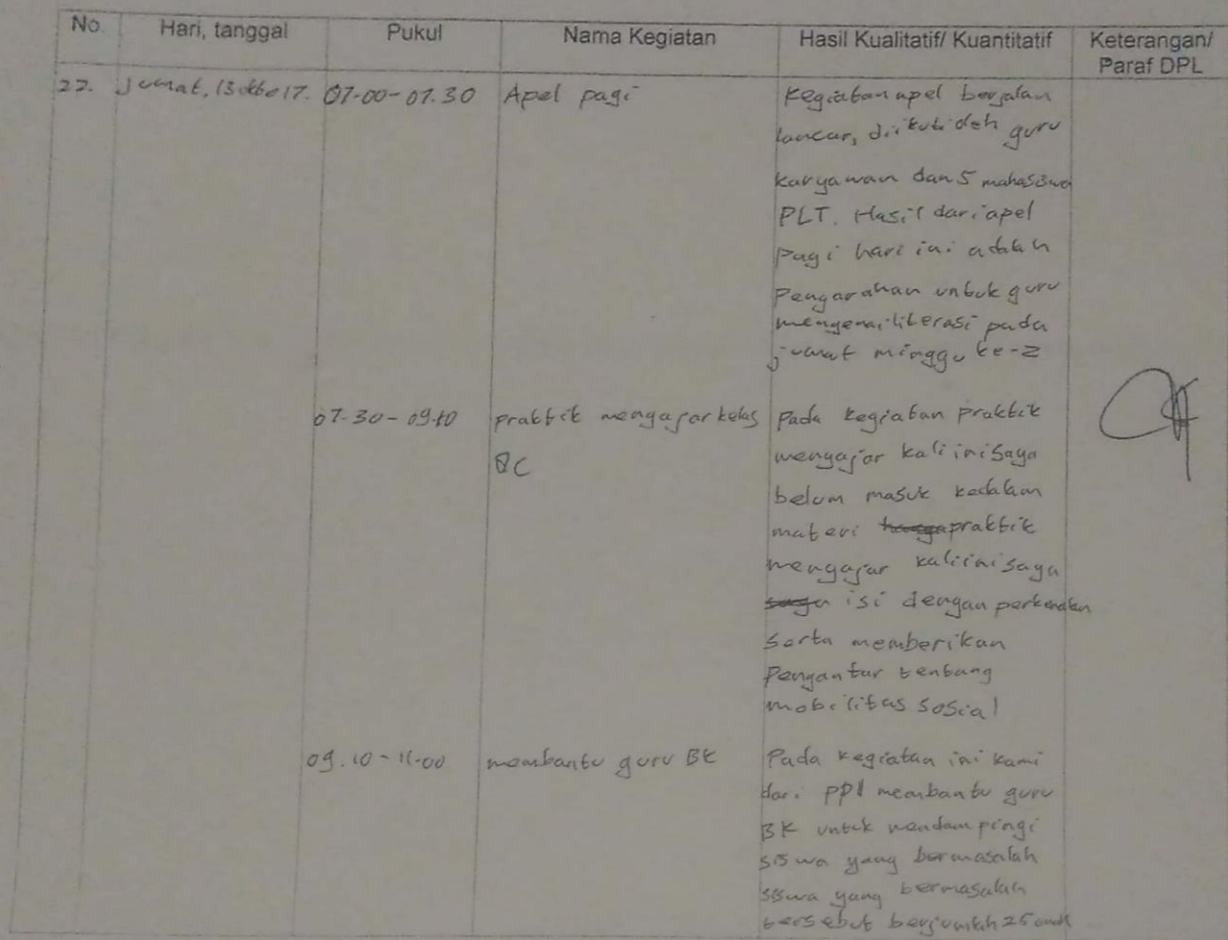 No. Hari, tanggal Pukul Nama Kegiatan Hasil Kualitatif/ Kuantitatif Keterangan/
Paraf DPL
22. Jumat, 13 okto 17. 07.00-07.30 Apel pagi Kegiatan apel berjalan
lancar, diikuti oleh guru
karyawan dan 5 mahasiswa
PLT. Hasil dari apel
pagi hari ini adalah
Pengarahan untuk guru
mengenai literasi pada
jumat minggu ke-2
07.30-09.10 praktik mengajar kelas Pada kegiatan praktik
8C mengajar kali ini saya
belum masuk kedalam
materi praktik
mengajar kali ini saya
isi dengan perkenalan
serta memberikan
Pengantar tentang
mobilitas sosial
09.10-11.00 membantu guru BK Pada kegiatan ini kami
dari PPl membantu guru
BK untuk mendampingi
siswa yang bermasalah
siswa yang bermasalah
tersebut berjumlah 25 anak